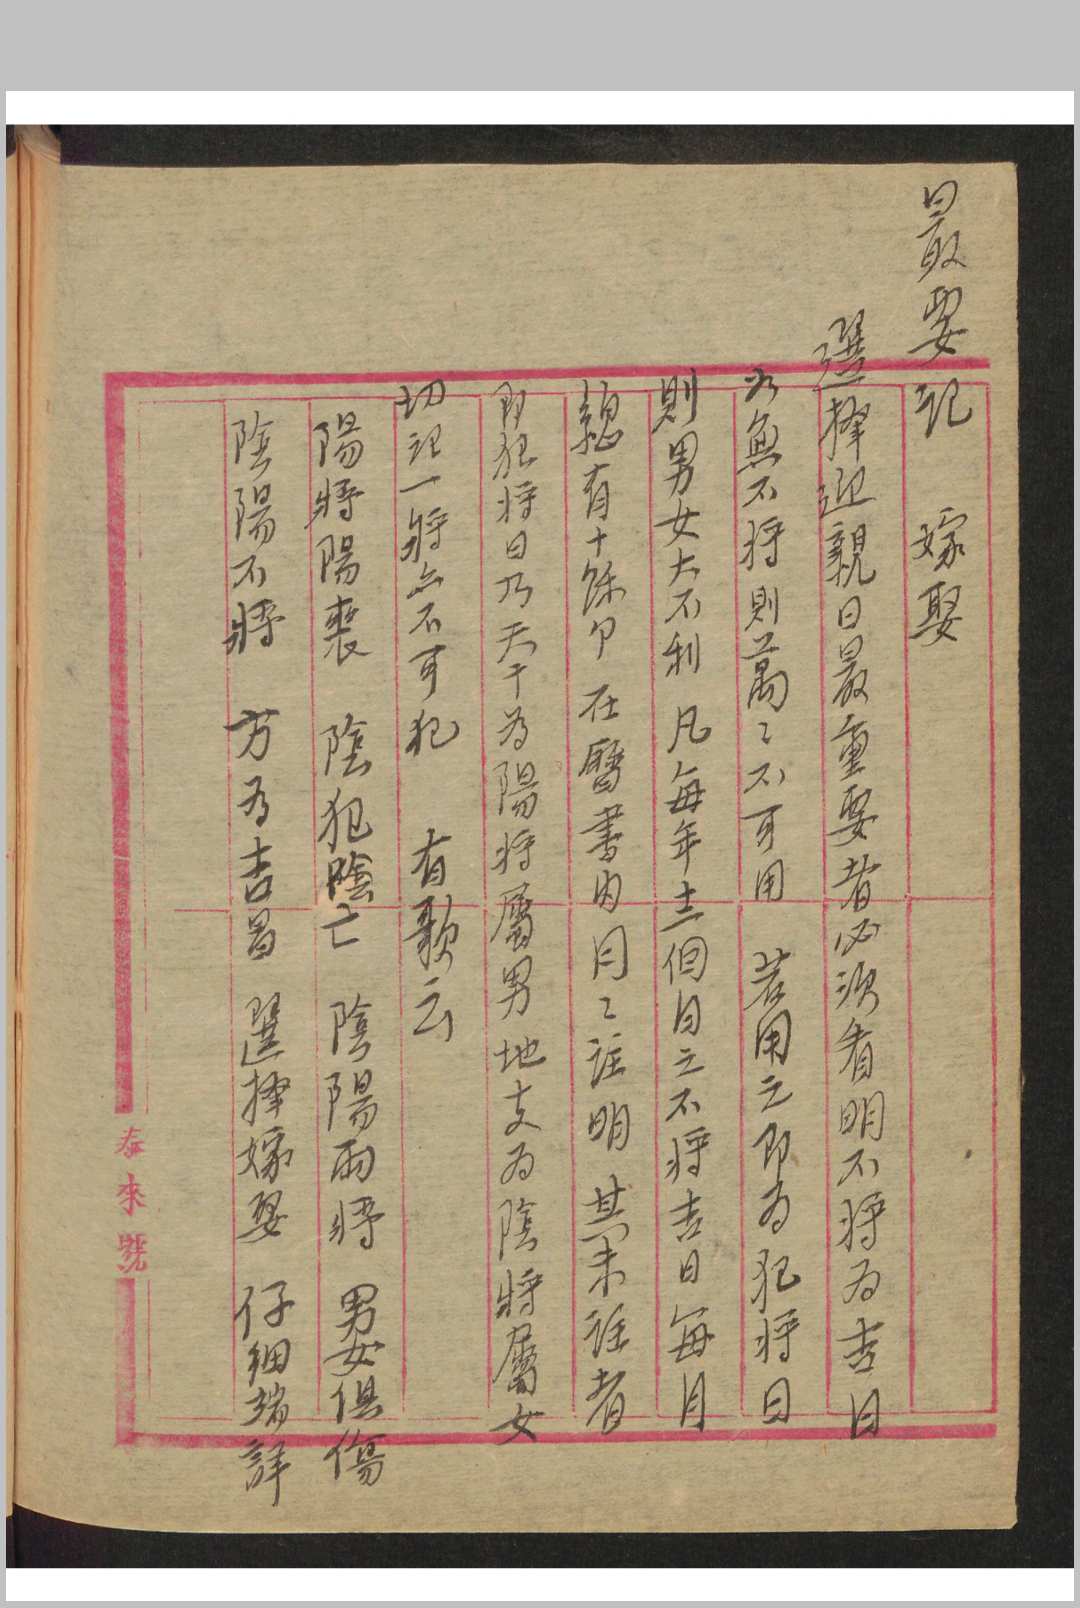 最要記　嫁娶
選擇迎親日最重要者必須看明不將為吉日
如無不將則萬〻不可用　若用之即為犯將日
則男女大不利　凡每年十二個月之不將吉日每月
總有十餘個　在曆書內月〻註明　其未註者
即犯將日乃天干為陽將屬男地支為陰將屬女
切記一將亦不可犯　有歌云
陽將陽喪　陰犯陰亡　陰陽兩將　男女俱傷
陰陽不將　方為吉昌　選擇嫁娶　仔細端詳
泰來號